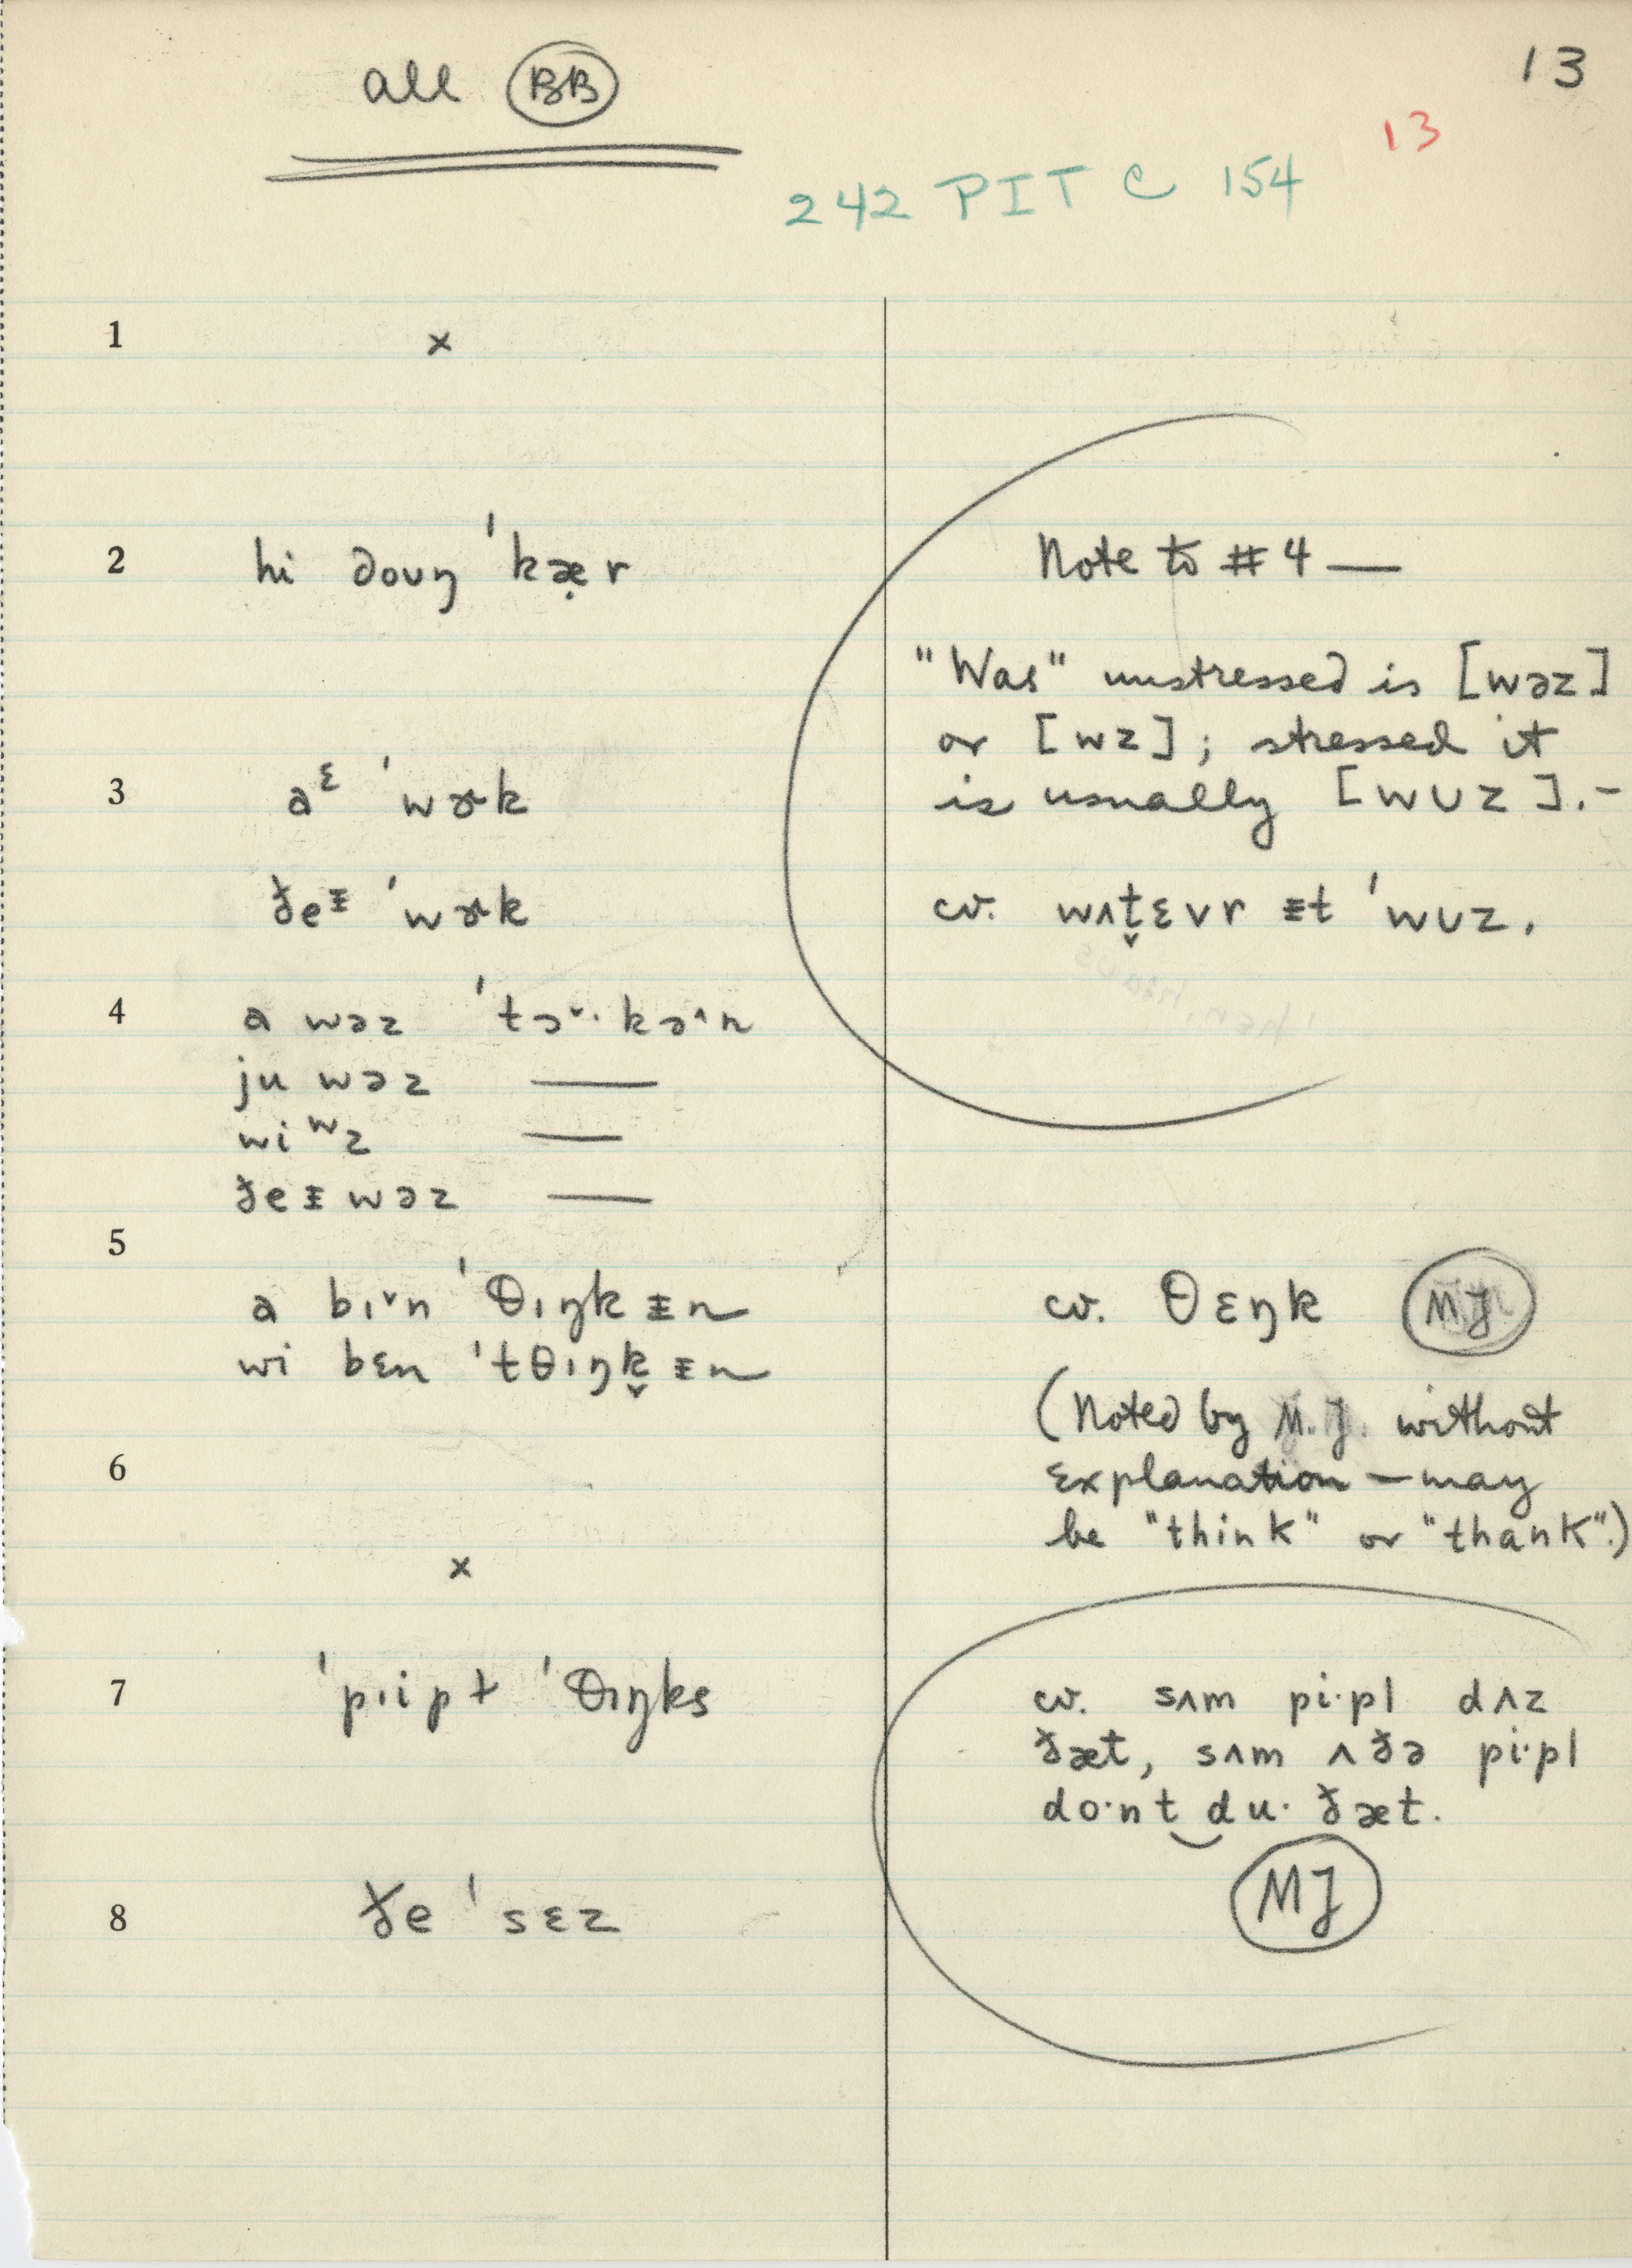 all BB
13
13
242 PIT C 154
1 x
2 hi doʊŋ ˈkæ̣r
3 aᵋ ˈwɚk
ðeᵻ ˈwɚk
4 a wəz ˈtɔ˅·kə˄n
ju wəz —
wi wz —
ðeᵻ wəz —
5
a bɪ˅n ˈθɪŋkᵻn
wi bɛn ˈtθɪŋk̬ᵻn
6
x
7 ˈpɪipɫ ˈθɪŋks
8 ðe ˈsɛz
Note to #4 —
"Was" unstressed is [wəz]
or [wz]; stressed it
is usually [wʊz].-
cv. wʌt̬ɛvr ᵻt ˈwʊz.
cv. θɛŋk MJ
(Noted by M.J. without
explanation — may
be "think" or "thank".)
cv. sʌm pi·pl dʌz
ðæt, sʌm ʌðə pi·pl
do·nt‿du· ðæt.
MJ